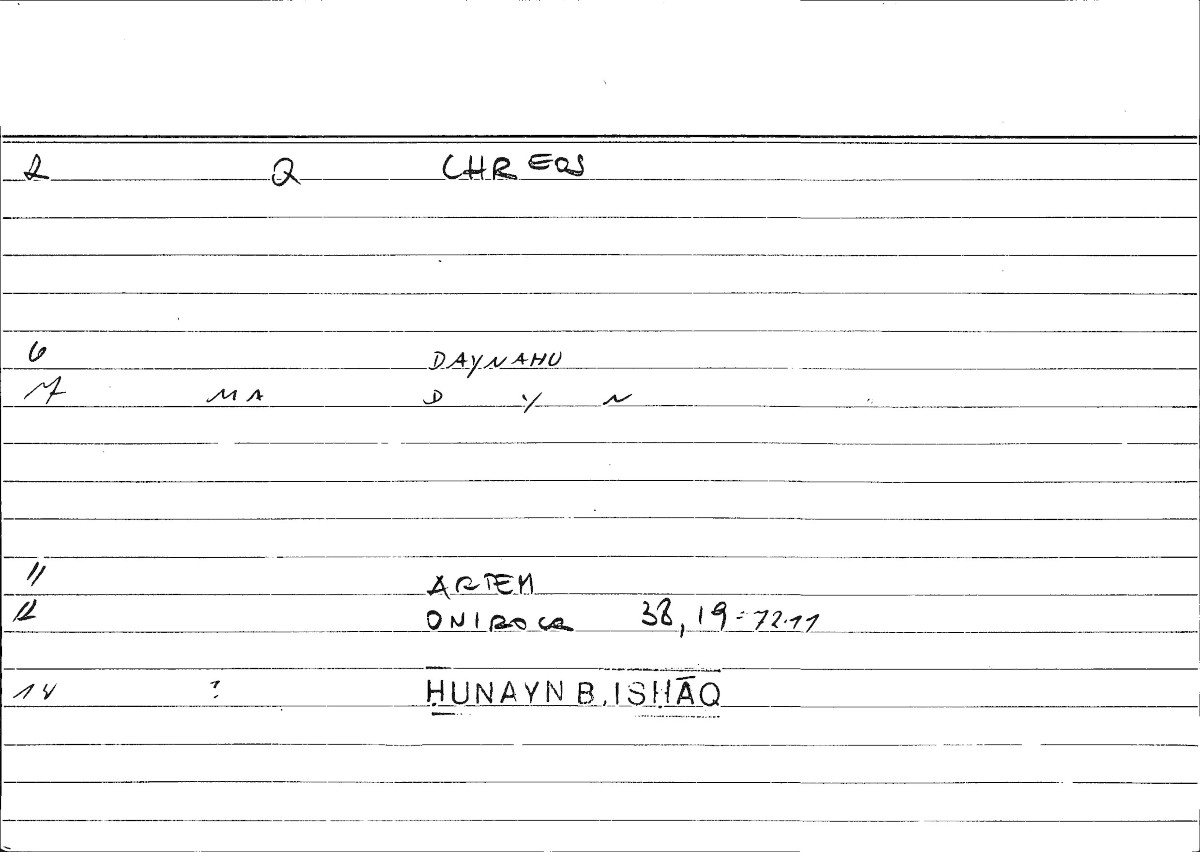 2 Q CHREOS
6 DAYNAHU
7 MA D Y N
11 ARTEM
12 ONIROCR 38,19=72.11
14 ? ḤUNAYN B. ISḤĀQ